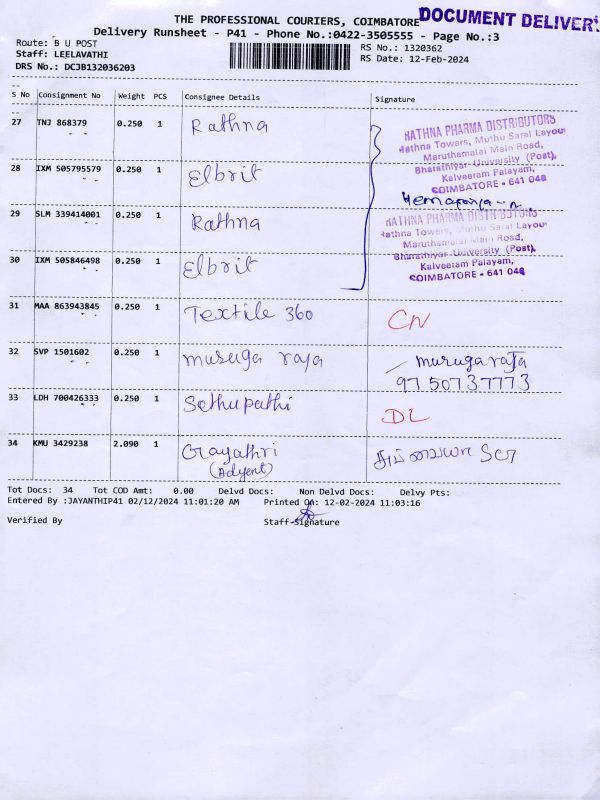 THE PROFESSIONAL COURIERS, COIMBATORE
DOCUMENT DELIVER
Delivery Runsheet - P41 - Phone No.:0422-3505555 - Page No.:3
Route: B U POST
RS No.: 1320362
Staff: LEELAVATHI
RS Date: 12-Feb-2024
DRS No.: DCJB132036203
S No Consignment No Weight PCS Consignee Details Signature
27 TNJ 868379 0.250 1 Rathna
RATHNA PHARMA DISTRIBUTORS
Rathna Towers, Muthu Saral Layou
Maruthamalai Main Road,
Bharathiyar University (Post),
Kalveeram Palayam,
COIMBATORE - 641 046
28 IXM 505795579 0.250 1 Elbrit
29 SLM 339414001 0.250 1 Rathna
RATHNA PHARMA DISTRIBUTORS
Rathna Towers, Muthu Saral Layou
Maruthamalai Main Road,
Bharathiyar University (Post),
Kalveeram Palayam,
COIMBATORE - 641 046
30 IXM 505846498 0.250 1 Elbrit
31 MAA 863943845 0.250 1 Textile 360 CN
32 SVP 1501602 0.250 1 muruga raja murugaraja
9750737773
33 LDH 700426333 0.250 1 Sethupathi DL
34 KMU 3429238 2.090 1 Gayathri
(Adyent)
Tot Docs: 34 Tot COD Amt: 0.00 Delvd Docs: Non Delvd Docs: Delvy Pts:
Entered By :JAYANTHIP41 02/12/2024 11:01:20 AM Printed On: 12-02-2024 11:03:16
Verified By Staff-Signature